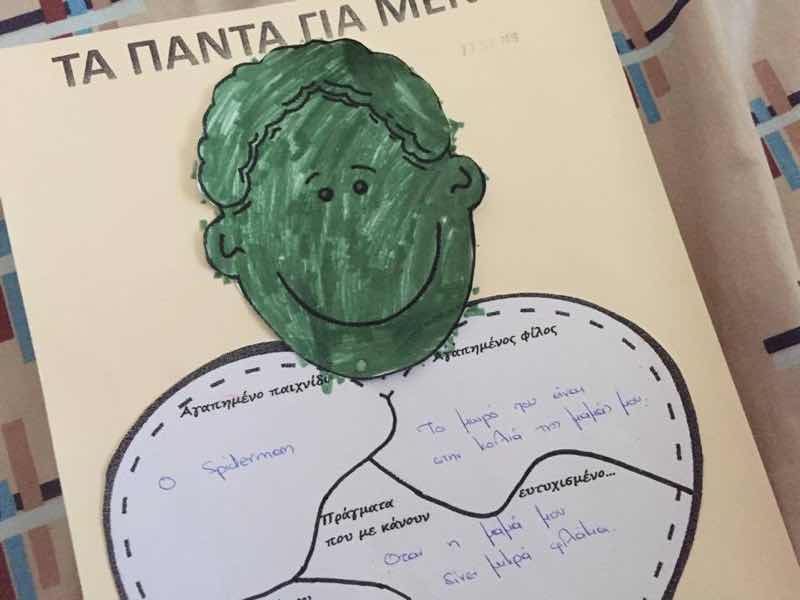 ΤΑ ΠΑΝΤΑ ΓΙΑ ΜΕΝ
Αγαπημένο παιχνίδι
Ο Spiderman
Αγαπημένος φίλος
Το μωρό που είναι
στην κοιλιά της μαμάς μου.
Πράγματα
που με κάνουν
ευτυχισμένο...
Όταν η μαμά μου
δίνει μικρά φιλάκια.